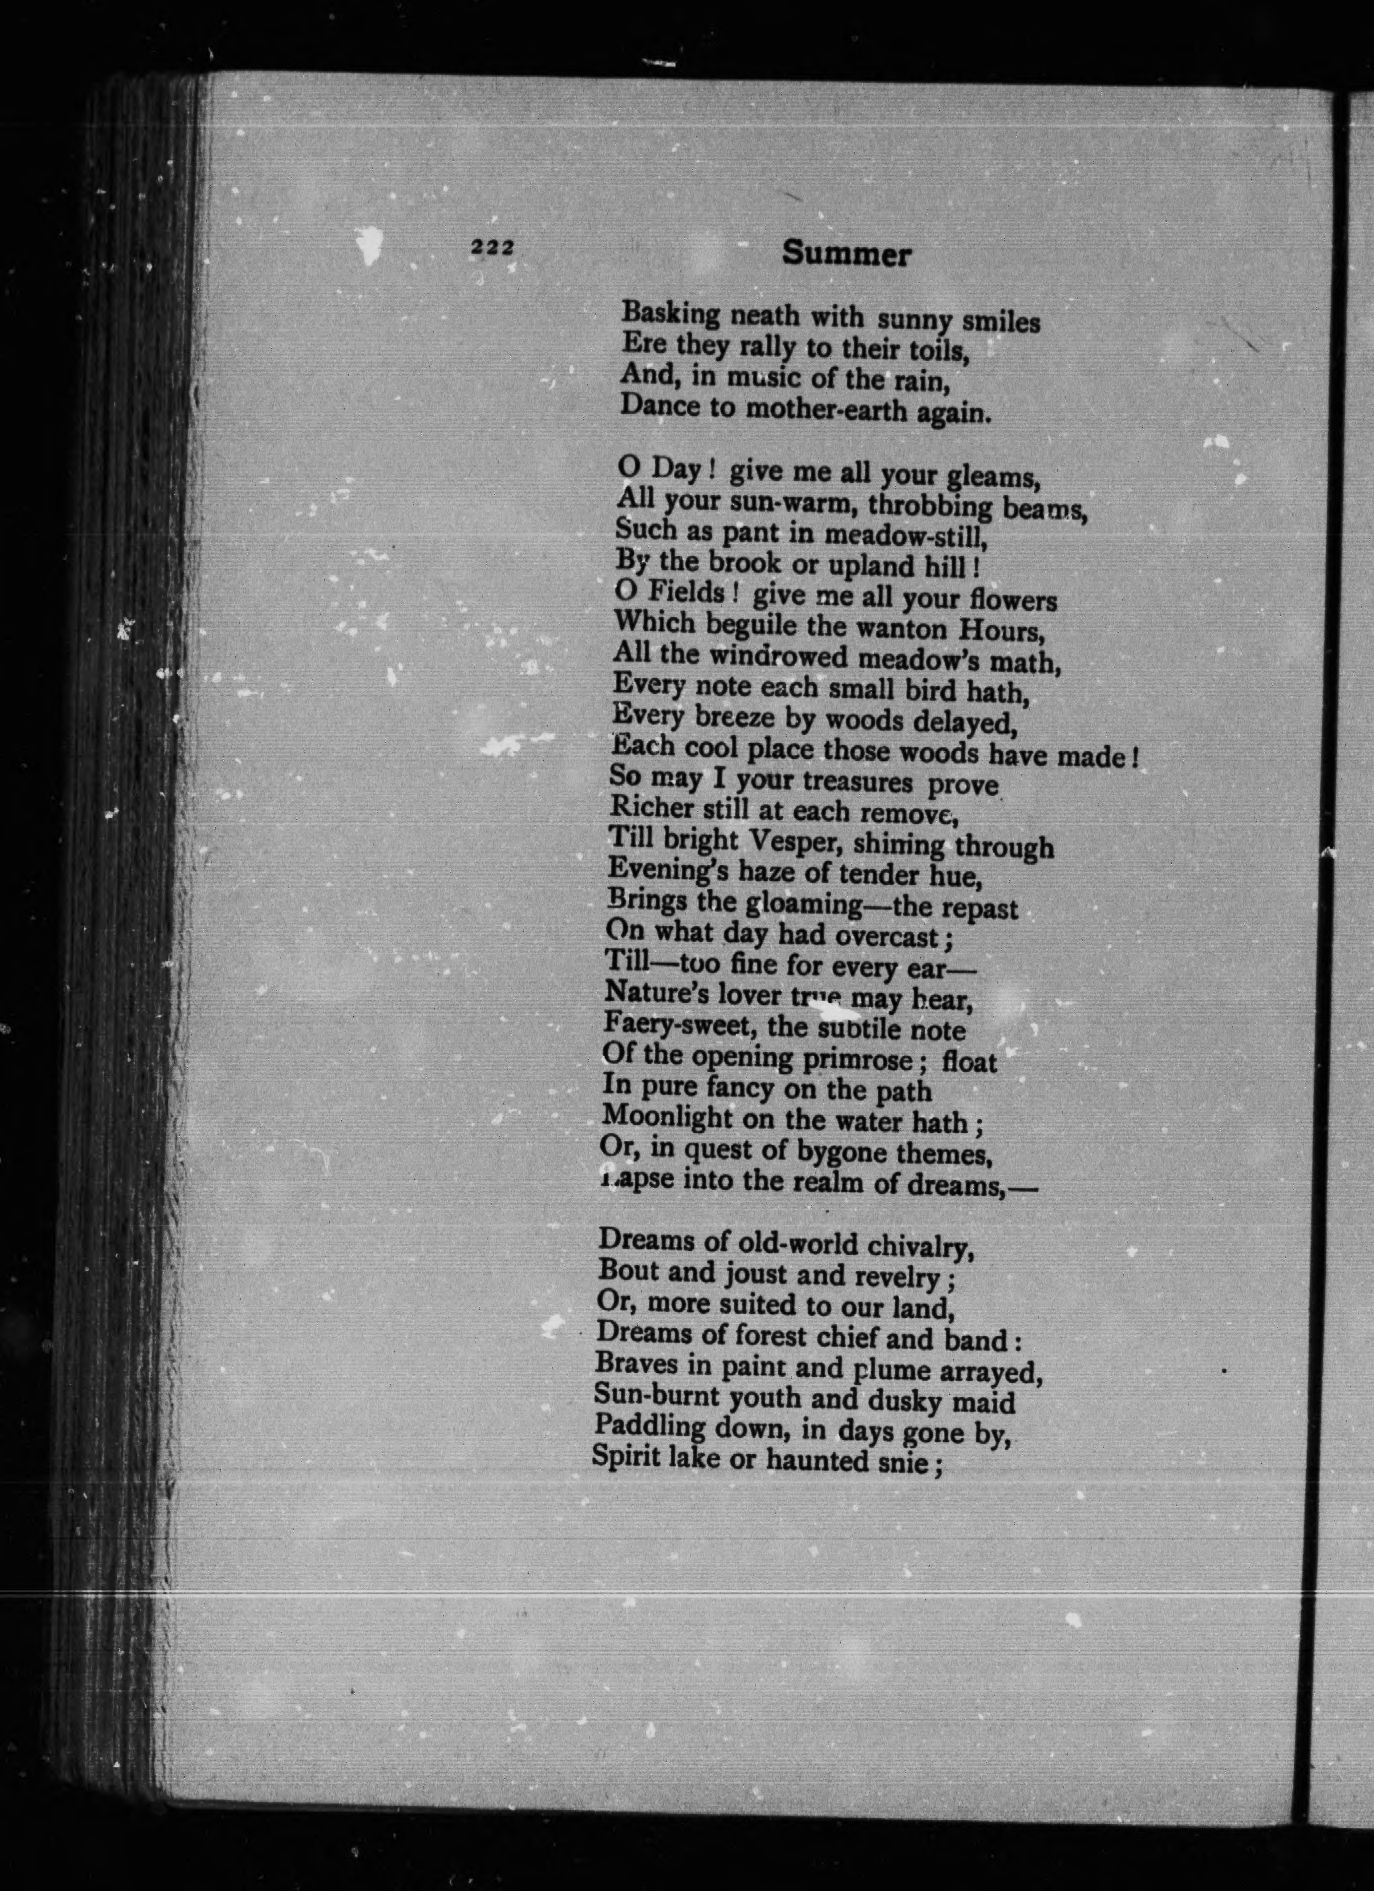 222 Summer
Basking neath with sunny smiles
Ere they rally to their toils,
And, in music of the rain,
Dance to mother-earth again.
O Day! give me all your gleams,
All your sun-warm, throbbing beams,
Such as pant in meadow-still,
By the brook or upland hill!
O Fields! give me all your flowers
Which beguile the wanton Hours,
All the windrowed meadow's math,
Every note each small bird hath,
Every breeze by woods delayed,
Each cool place those woods have made!
So may I your treasures prove
Richer still at each remove,
Till bright Vesper, shining through
Evening's haze of tender hue,
Brings the gloaming—the repast
On what day had overcast;
Till—too fine for every ear—
Nature's lover true may hear,
Faery-sweet, the subtile note
Of the opening primrose; float
In pure fancy on the path
Moonlight on the water hath;
Or, in quest of bygone themes,
Lapse into the realm of dreams,—
Dreams of old-world chivalry,
Bout and joust and revelry;
Or, more suited to our land,
Dreams of forest chief and band:
Braves in paint and plume arrayed,
Sun-burnt youth and dusky maid
Paddling down, in days gone by,
Spirit lake or haunted snie;